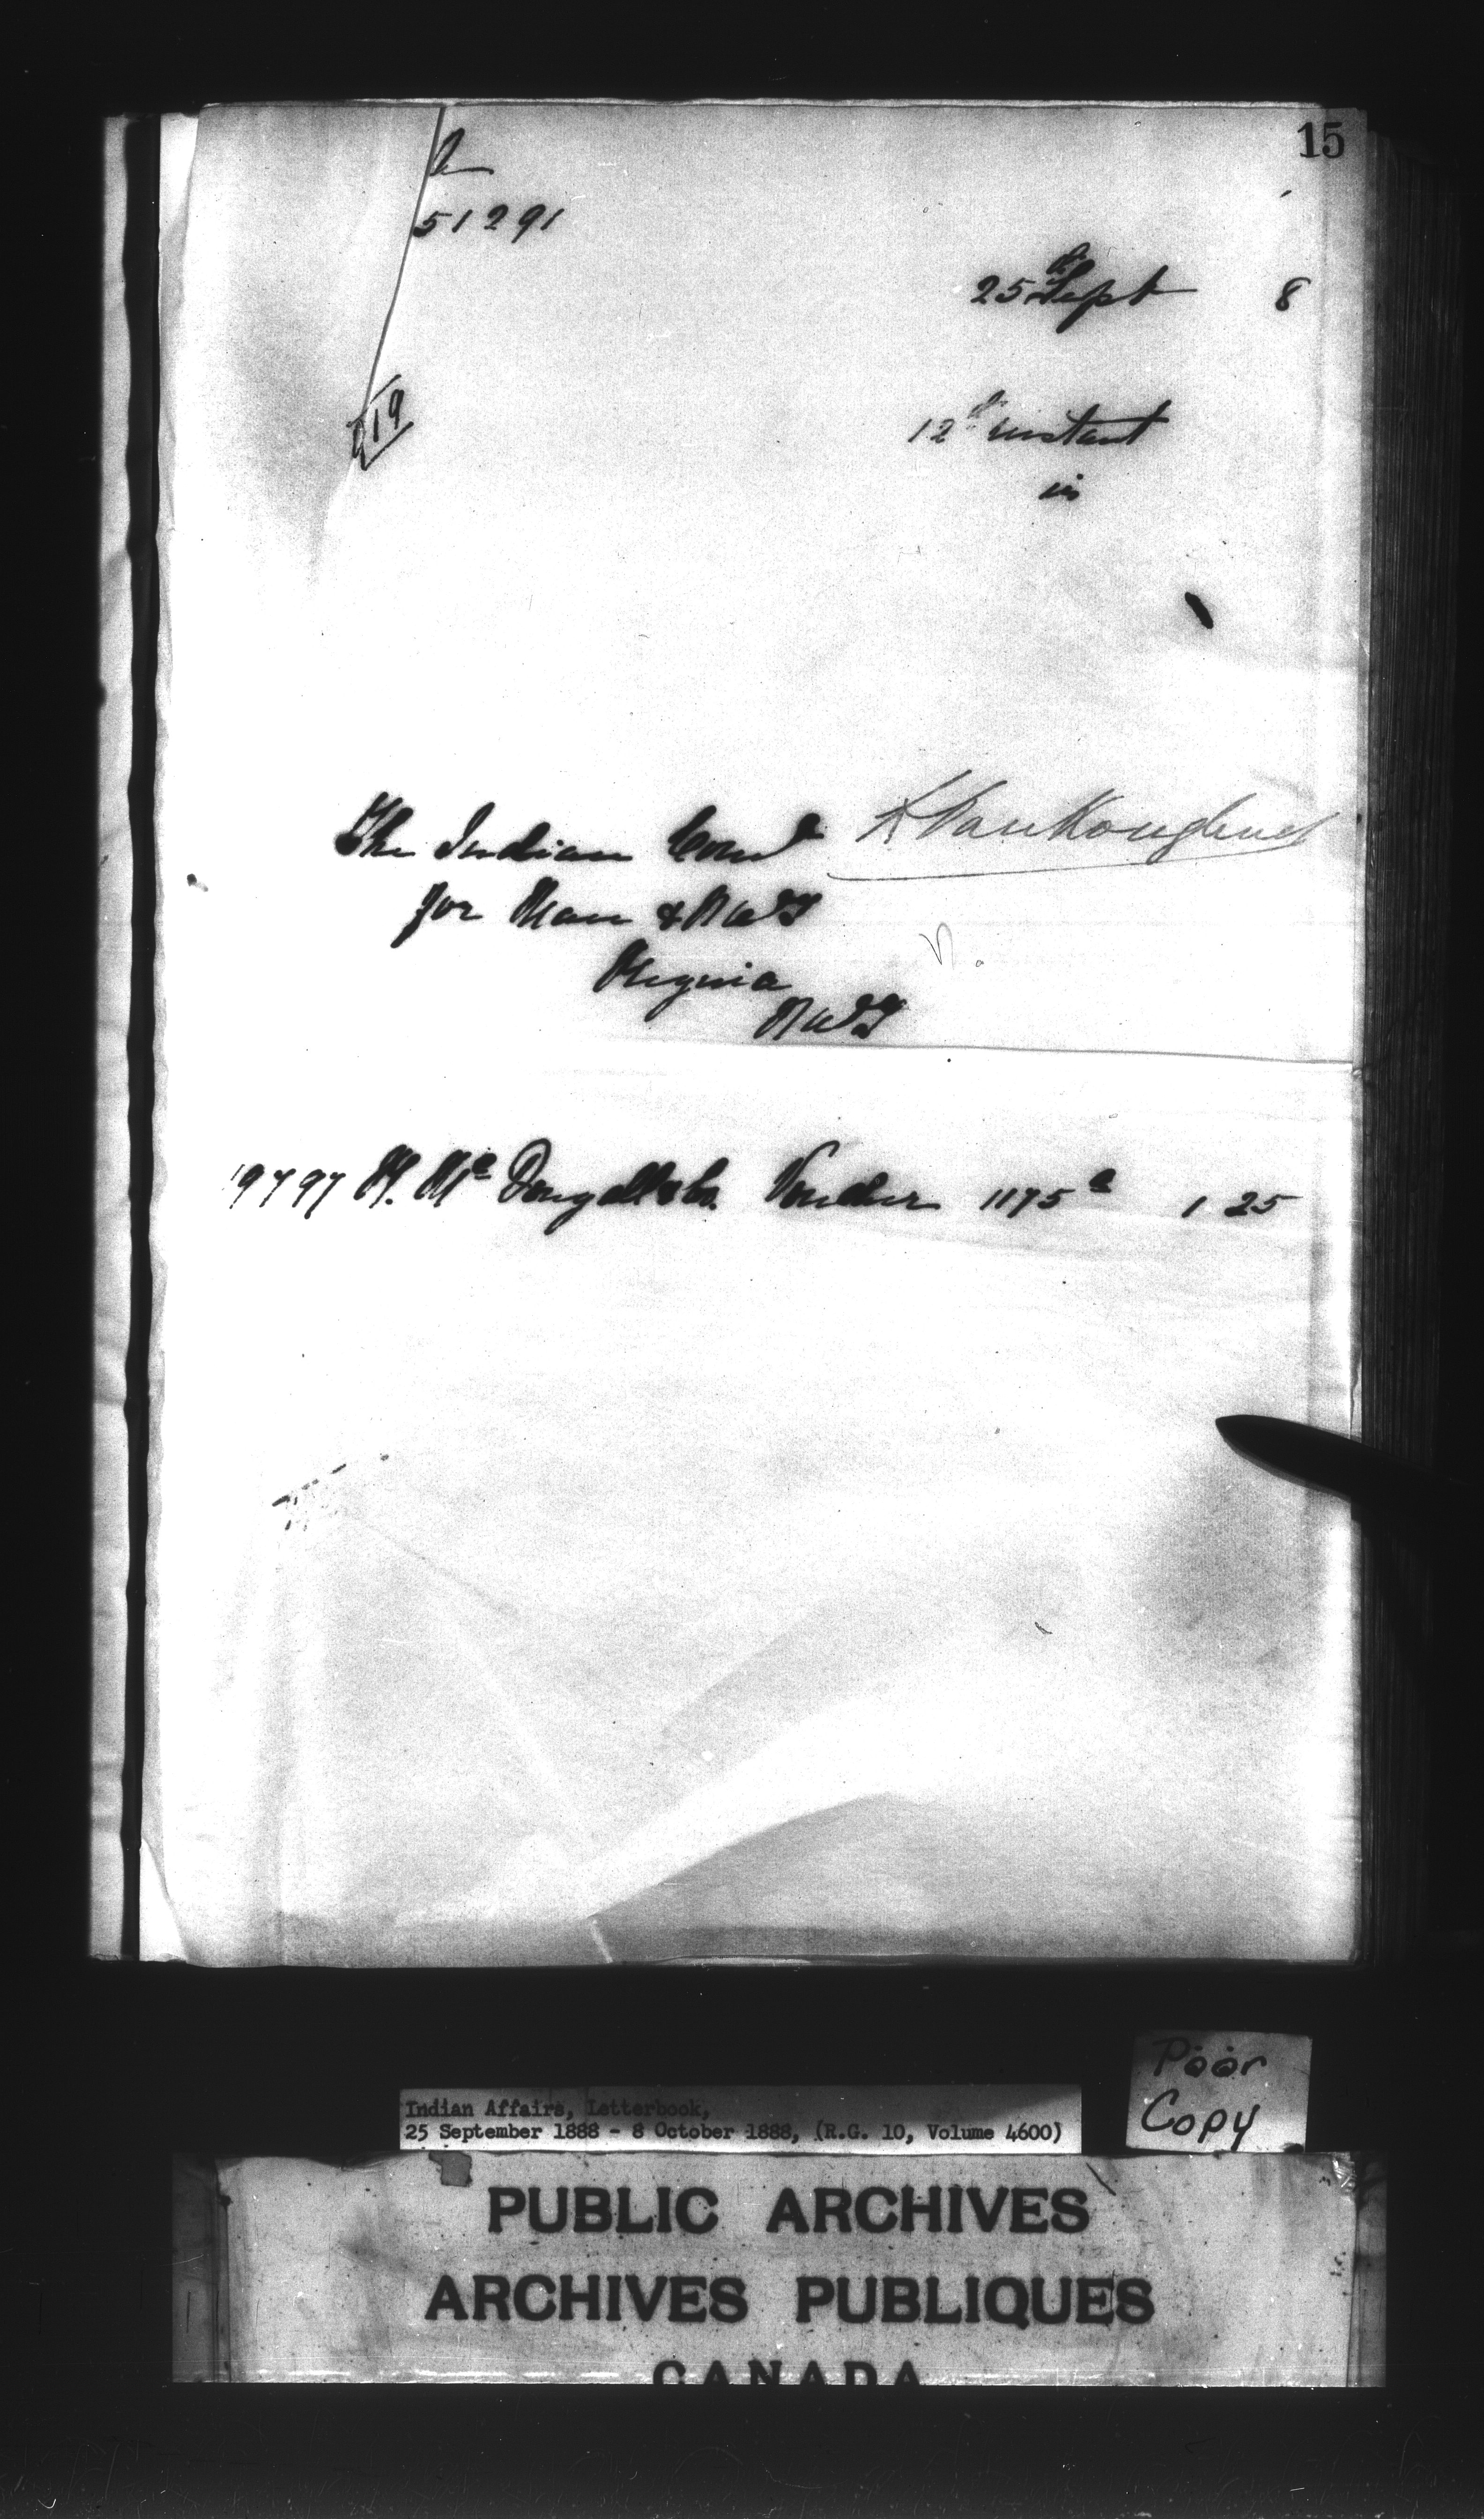 15
51291
25th Sept 8
119
12th instant
in
The Indian Comr L VanKoughnet
for Man & N W T
Regina
N W T
19797 H. Mc Dougall & Co. Voucher 1175a 1 25
Poor
Copy
Indian Affairs, Letterbook,
25 September 1888 - 8 October 1888, (R.G. 10, Volume 4600)
PUBLIC ARCHIVES
ARCHIVES PUBLIQUES
CANADA